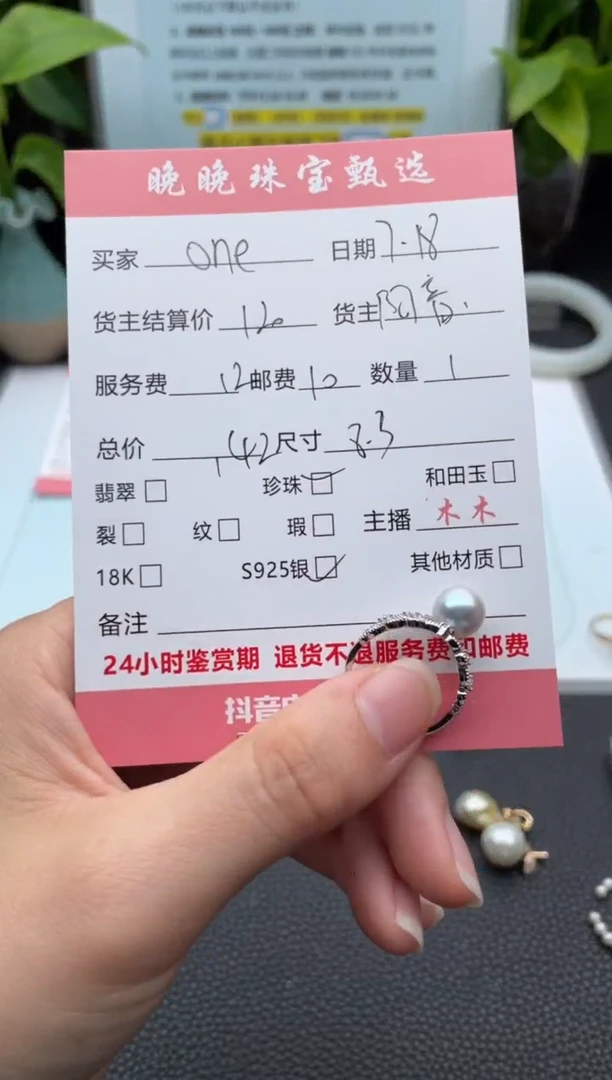 晚晚珠宝甄选
买家 one 日期 7.18
货主结算价 120 货主
服务费 12 邮费 10 数量 1
总价 142 尺寸 8.3
翡翠 珍珠 和田玉
裂 纹 瑕 主播 木木
18K S925银 其他材质
备注
24小时鉴赏期 退货不退服务费和邮费
抖音